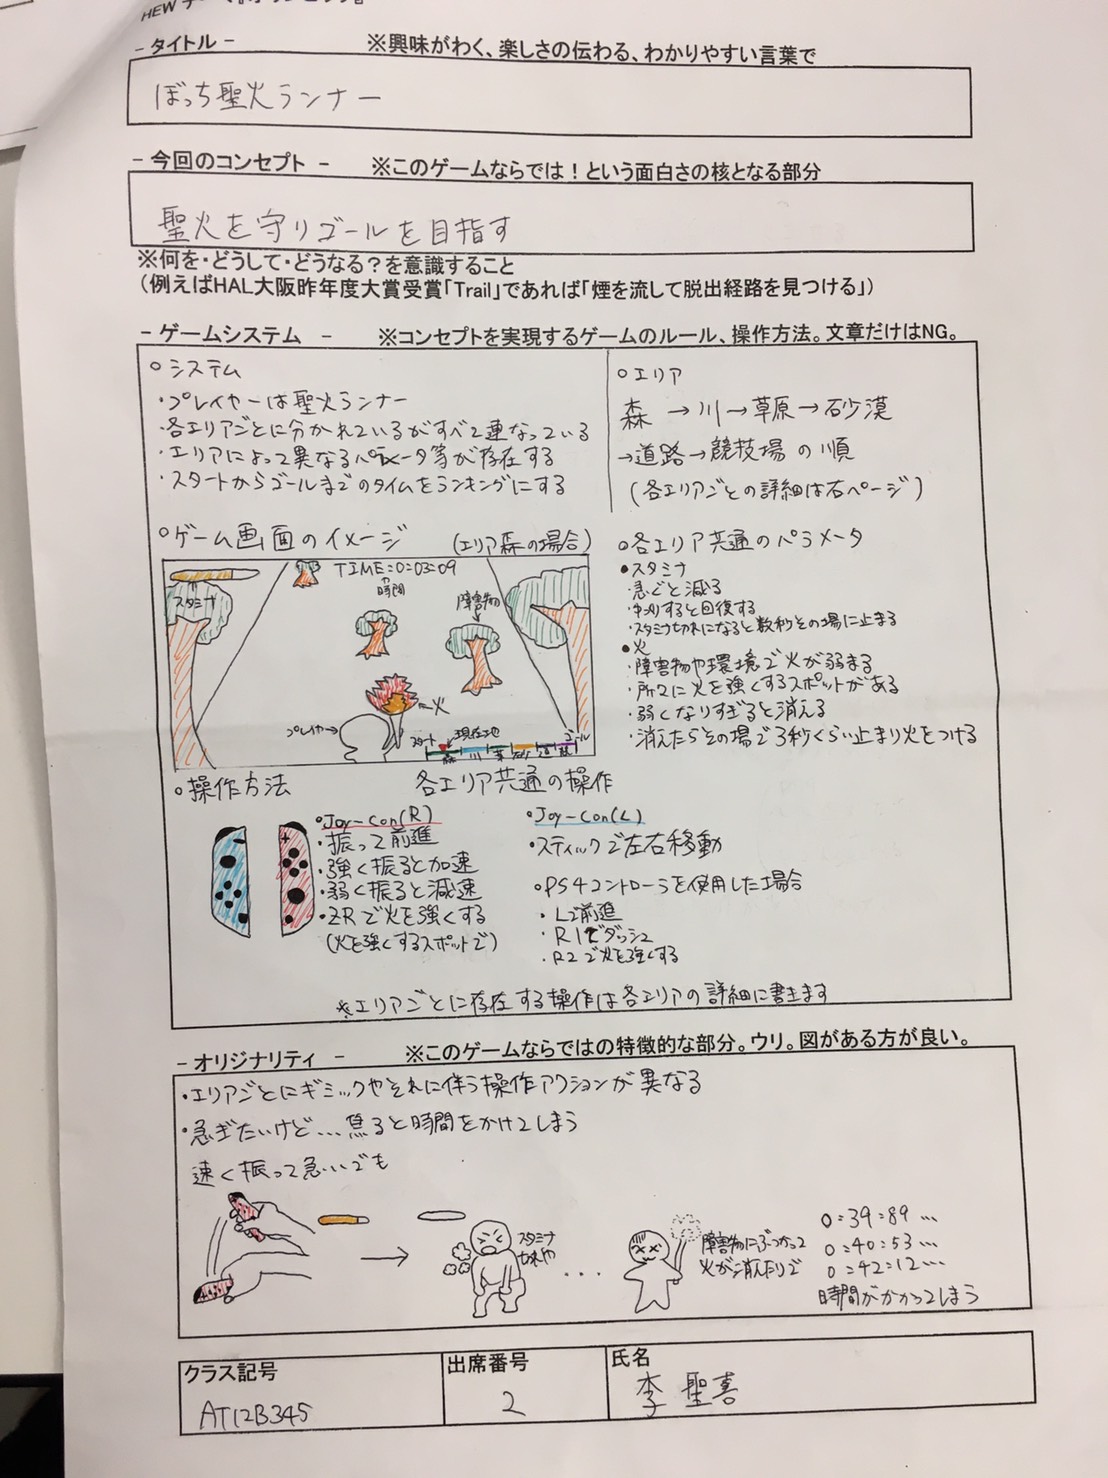 - タイトル -　※興味がわく、楽しさの伝わる、わかりやすい言葉で
ぼっち聖火ランナー
- 今回のコンセプト -　※このゲームならでは！という面白さの核となる部分
聖火を守りゴールを目指す
※何を・どうして・どうなる？を意識すること
（例えばHAL大阪昨年度大賞受賞「Trail」であれば「煙を流して脱出経路を見つける」）
- ゲームシステム -　※コンセプトを実現するゲームのルール、操作方法。文章だけはNG。
○システム
・プレイヤーは聖火ランナー
・各エリアごとに分かれているがすべて連なっている
・エリアによって異なるパラメータ等が存在する
・スタートからゴールまでのタイムをランキングにする
○エリア
森→川→草原→砂漠
→道路→競技場の順
(各エリアごとの詳細は右ページ)
○ゲーム画面のイメージ (エリア森の場合)
TIME=0=03=09
時間
スタミナ
障害物
火
プレイヤー
スタート 現在地 ゴール
森 川 草 砂 道 競
○各エリア共通のパラメータ
●スタミナ
・急ぐと減る
・ゆっくりすると回復する
・スタミナ切れになると数秒その場に止まる
●火
・障害物や環境で火が弱まる
・所々に火を強くするスポットがある
・弱くなりすぎると消える
・消えたらその場で3秒くらい止まり火をつける
○操作方法　各エリア共通の操作
○Joy-Con(R)
・振って前進
・強く振ると加速
・弱く振ると減速
・ZRで火を強くする
(火を強くするスポットで)
○Joy-Con(L)
・スティックで左右移動
○PS4コントローラを使用した場合
・L2前進
・R1でダッシュ
・R2で火を強くする
※エリアごとに存在する操作は各エリアの詳細に書きます
- オリジナリティ -　※このゲームならではの特徴的な部分。ウリ。図がある方が良い。
・エリアごとにギミックやそれに伴う操作アクションが異なる
・急ぎたいけど...焦ると時間をかけてしまう
速く振って急いでも
スタミナ
切れや
...
障害物にぶつかって
火が消えたりで
0=39=89 ...
0=40=53 ...
0=42=12 ...
時間がかかってしまう
クラス記号 出席番号 氏名
AT12B345 2 李 聖喜